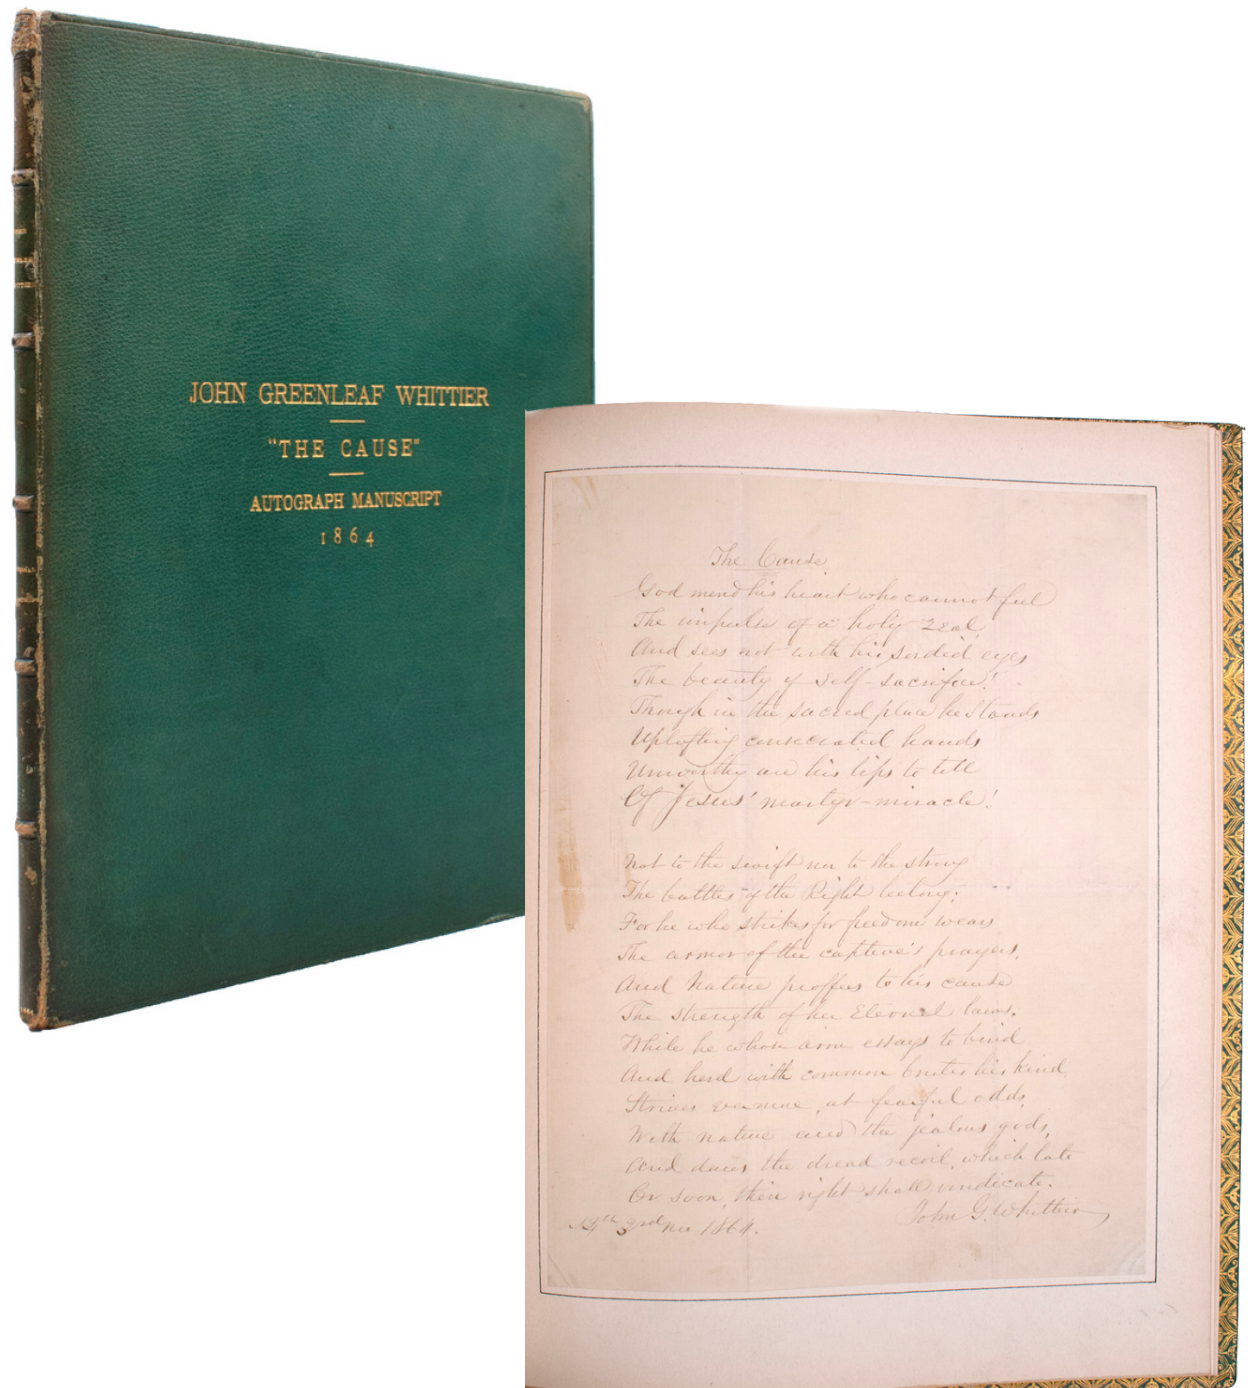 JOHN GREENLEAF WHITTIER
"THE CAUSE"
AUTOGRAPH MANUSCRIPT
1864
The Cause
God mend his heart who cannot feel
The impulse of a holy zeal,
And sees not with his sordid eyes
The beauty of self-sacrifice!
Though in the sacred place he stands
Uplifting consecrated hands
Unworthy are his lips to tell
Of Jesus' martyr-miracle!
Not to the swift nor to the strong
The battles of the Right belong;
For he who strikes for freedom wears
The armor of the captive's prayers,
And Nature proffers to his cause
The strength of her Eternal laws.
While he whose arm essays to bind
And herd with common brutes his kind
Strives evermore, at fearful odds,
With nature and the jealous gods,
And dares the dread recoil, which late
Or soon, their right shall vindicate.
John G. Whittier
3rd mo 1864.